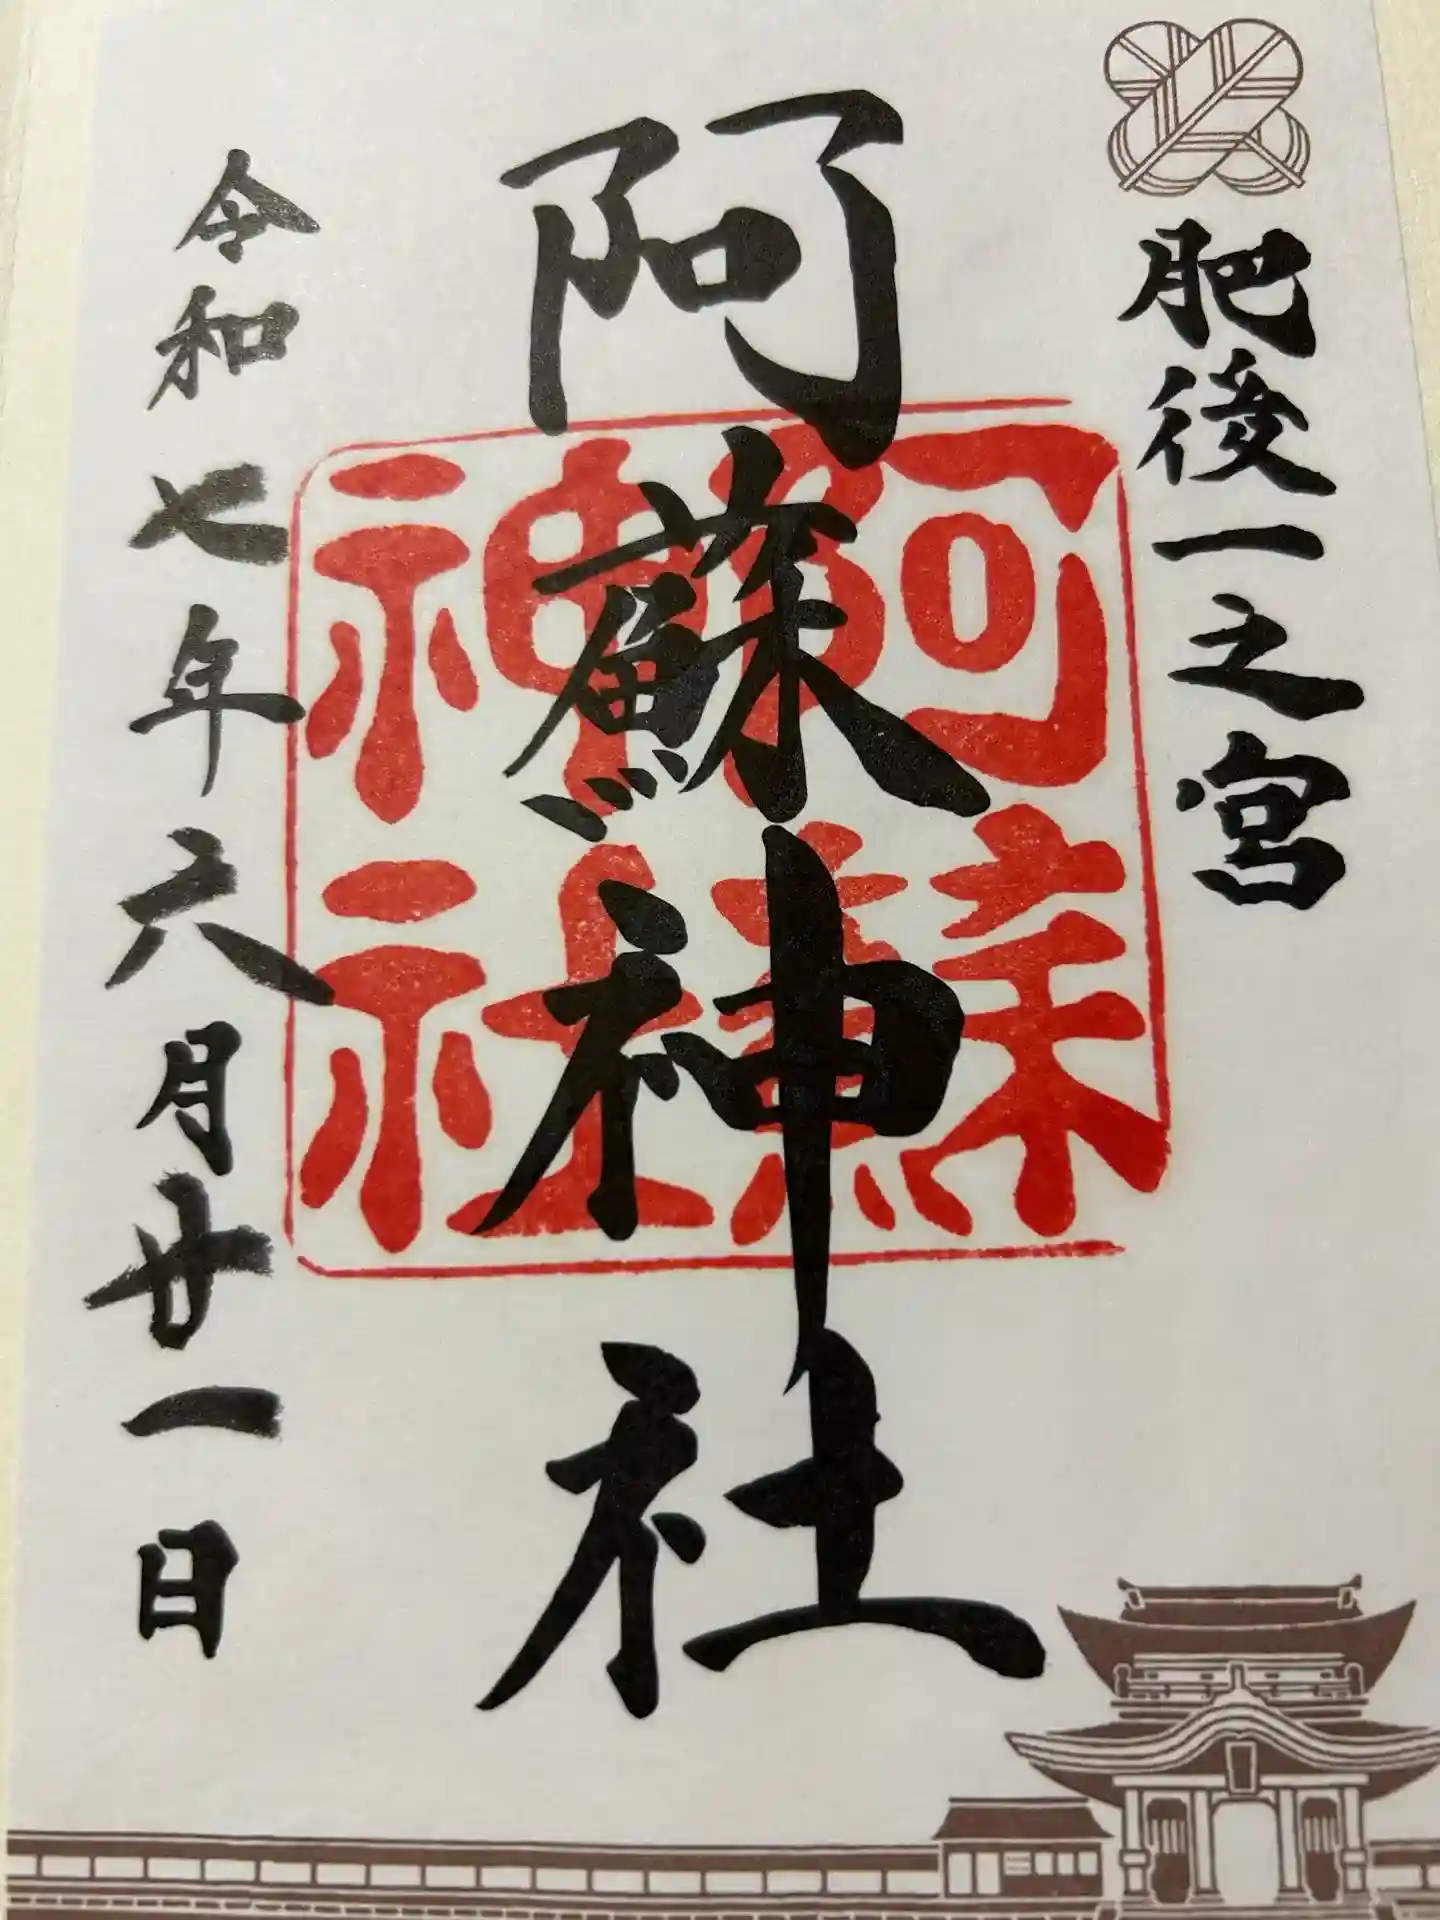 肥後一之宮
阿蘇神社
阿蘇神社
令和七年六月廿一日